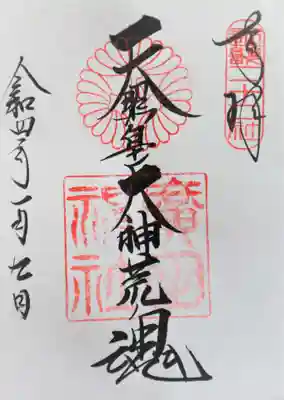 奉拝
天照皇大神荒魂
廣田
神社
令和四年一月七日